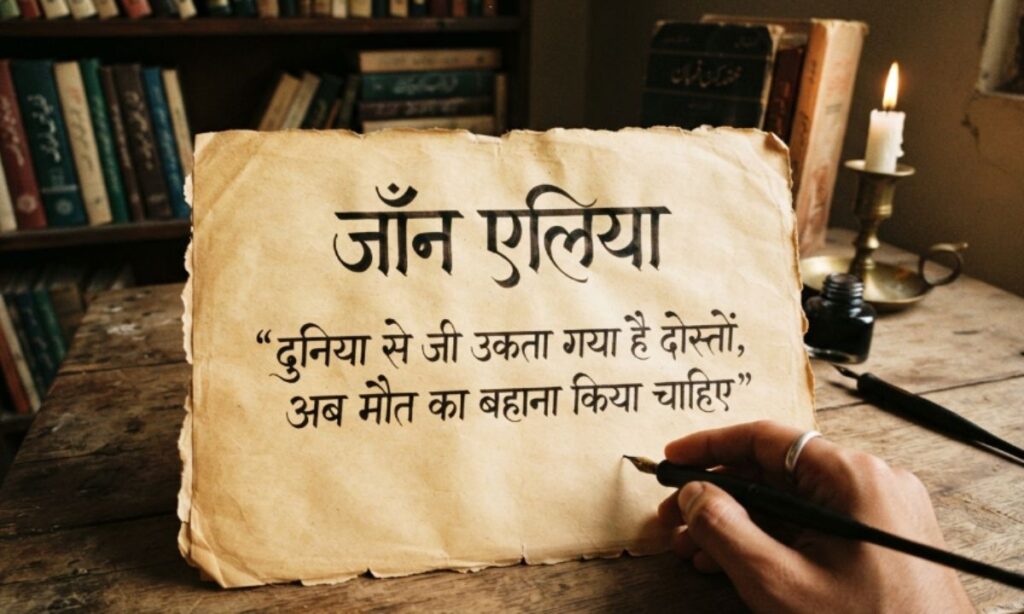 जॉंन एलिया
“दुनिया से जी उकता गया है दोस्तों,
अब मौत का बहाना किया चाहिए”